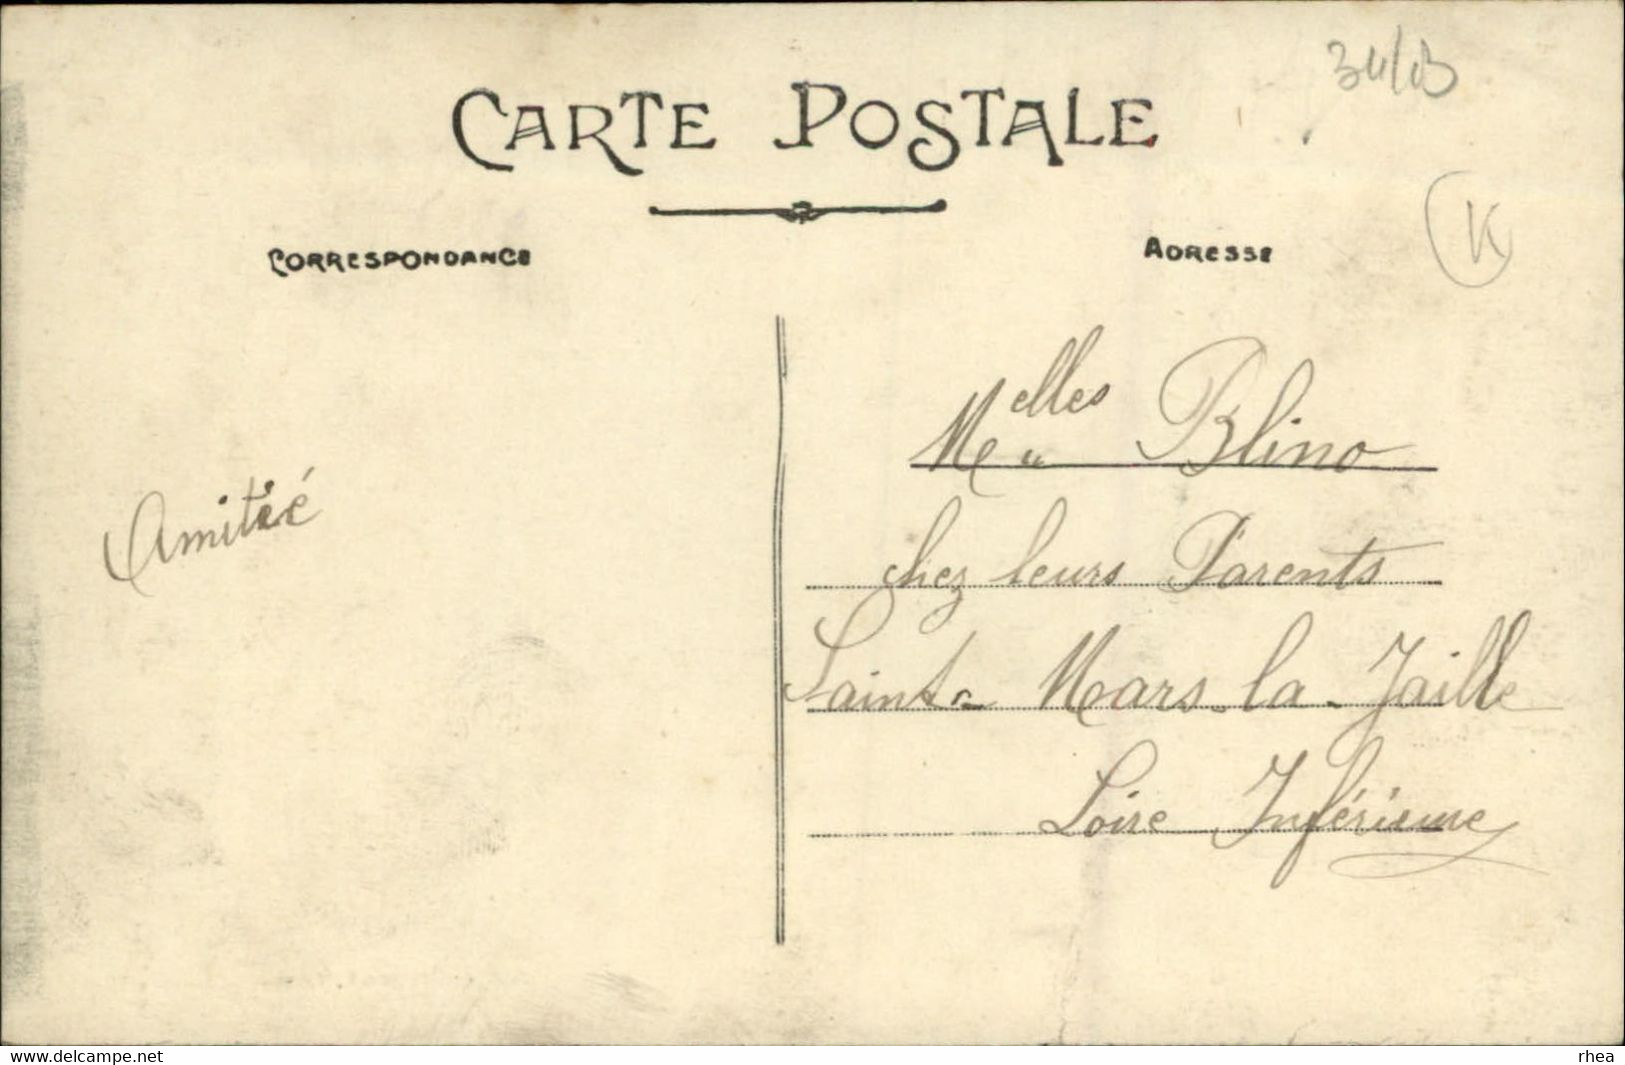 34/13
CARTE POSTALE
K
CORRESPONDANCE
ADRESSE
Melles Blino
chez leurs Parents
Amitié
Saint-Mars-la-Jaille
Loire Inférieure
www.delcampe.net
rhea